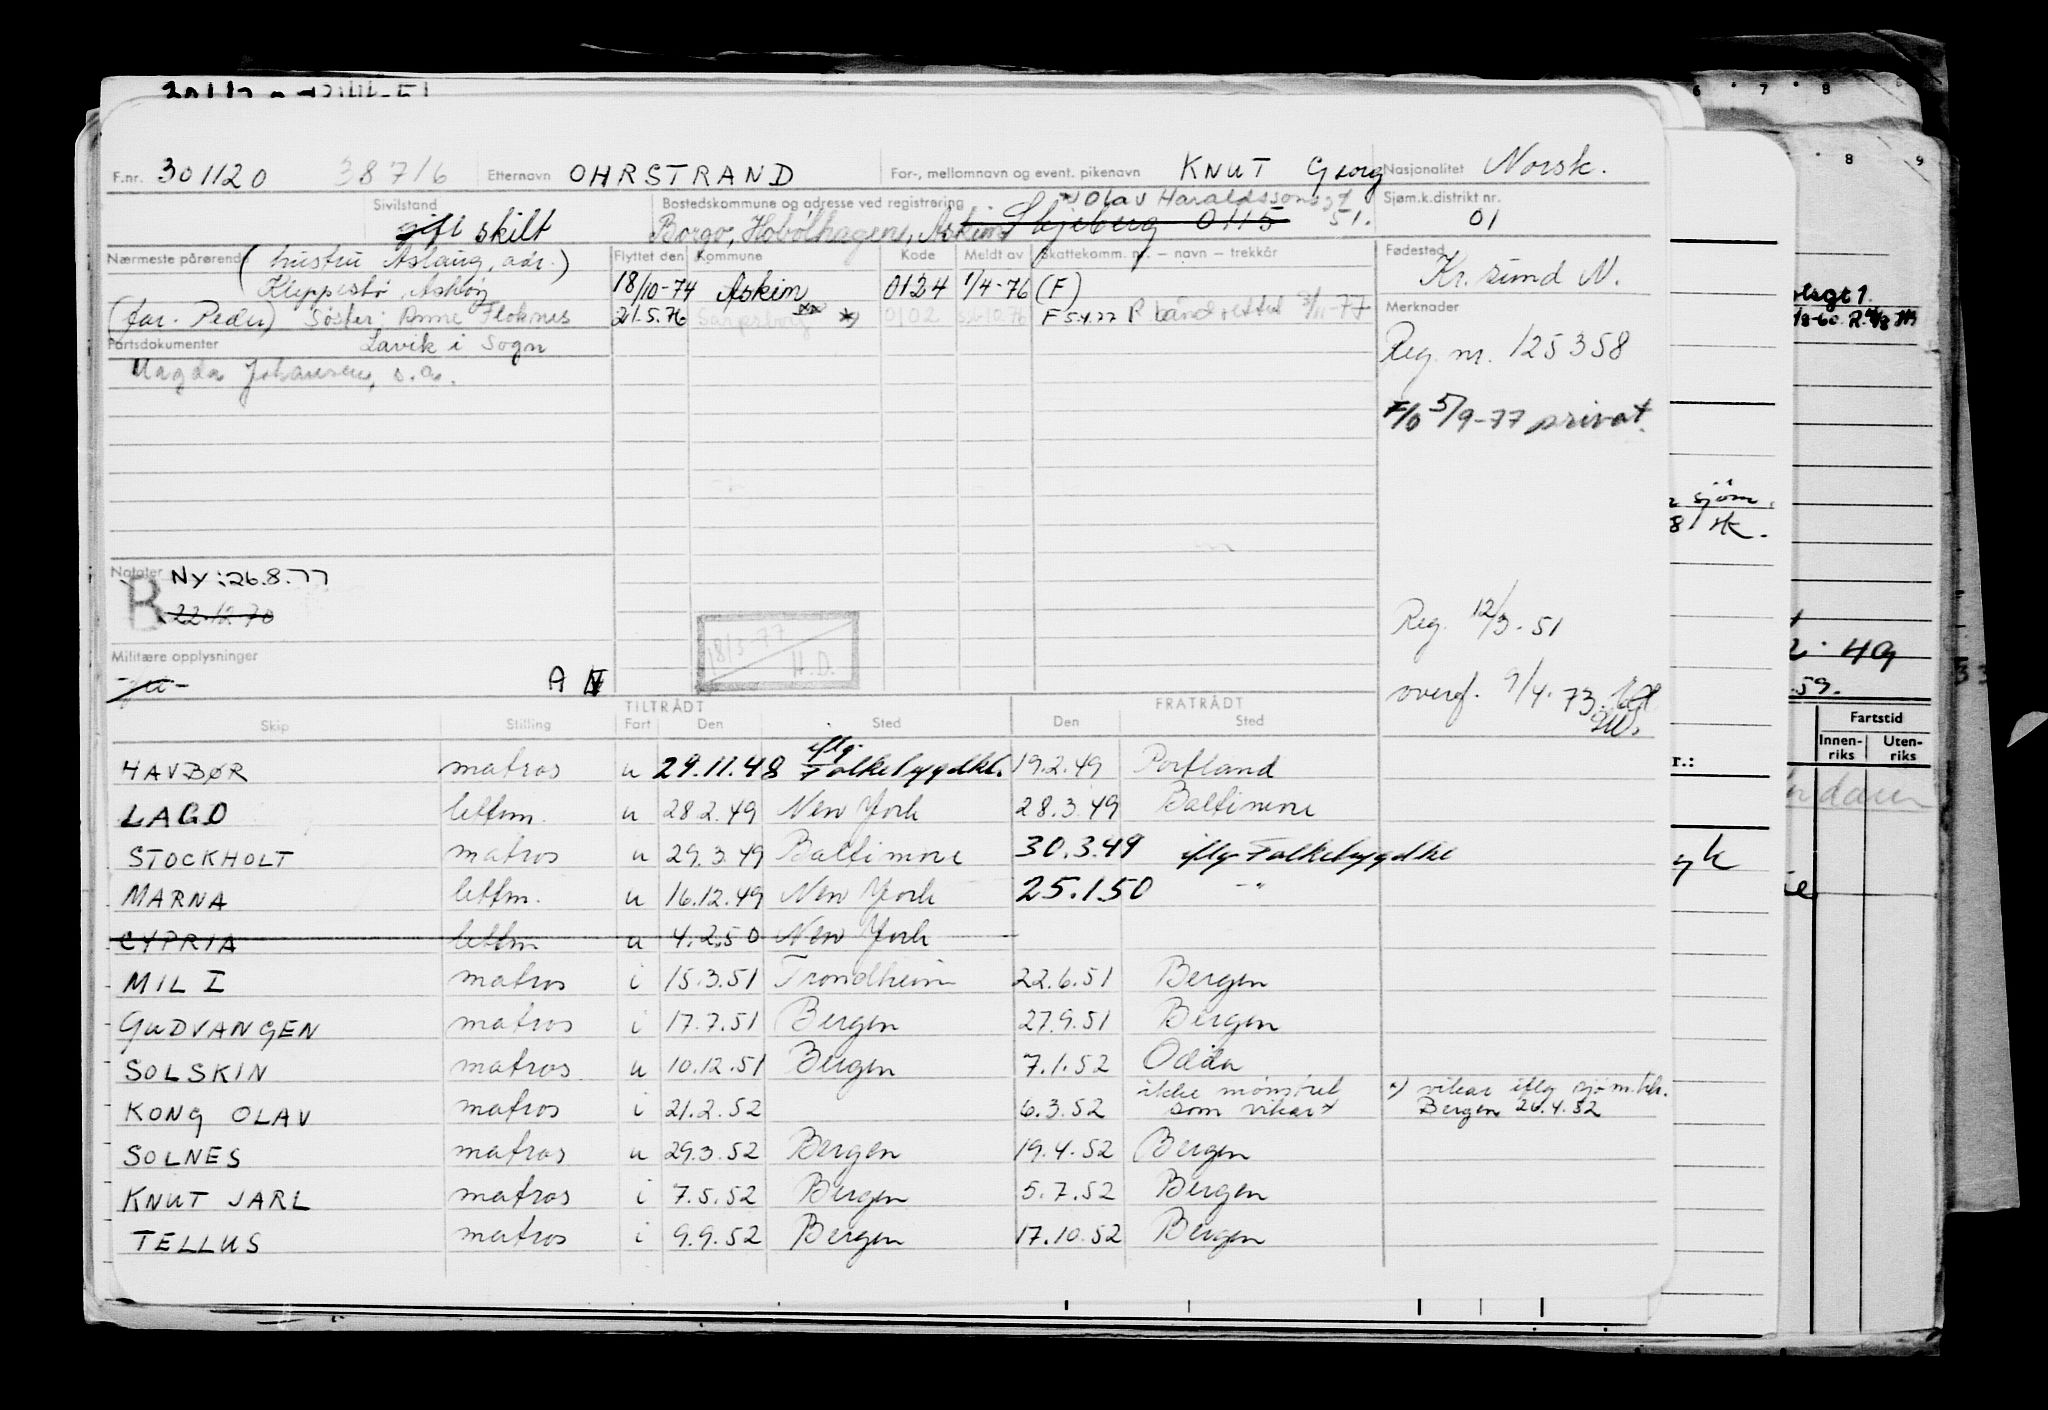 F.nr. 301120 38716 Etternavn OHRSTRAND For-, mellomnavn og event. pikenavn KNUT Georg Nasjonalitet Norsk.
Sivilstand gift skilt Bostedskommune og adresse ved registrering Olav Haraldssonsgt 51. Sjøm.k.distrikt nr. 01
Borgo, Hobølhagens, Askim Skjeberg 0115
Nærmeste pårørende (hustru Aslaug, adr.) Flyttet den Kommune Kode Meldt av Skattekomm. nr. – navn – trekkår Fødested
Kleppestø, Askøy 18/10-74 Askim 0124 1/4-76 (F) Kr. sund N.
(far. Peder) Søster: Anne Floknes 21.5.76 Sarpsborg xx *) 0102 F 5.4.77 Merknader
Fartsdokumenter Lavik i Sogn
Magda Johansen, s.a. Reg. nr. 125358
F/O 5/9-77 privat.
Notater Ny: 26.8.77
B 22.12.70
18/5-77 H.D.
Reg. 12/3-51
Militære opplysninger
A
overf. 9/4.73.
TILTRÅDT FRATRÅDT
Skip Stilling Fart Den Sted Den Sted
HAVBØR matros u 29.11.48 iflg. Falkebygdkl. 19.2.49 Portland
LAGO lettm. u 28.2.49 New York 28.3.49 Baltimore
STOCKHOLT matros u 29.3.49 Baltimore 30.3.49 iflg Falkebygdkl
MARNA lettm. u 16.12.49 New York 25.1.50 -"-
CYPRIA lettm u 4.2.50 New York
MIL I matros i 15.3.51 Trondheim 22.6.51 Bergen
GUDVANGEN matros i 17.7.51 Bergen 27.9.51 Bergen
SOLSKIN matros u 10.12.51 Bergen 7.1.52 Odda
KONG OLAV matros i 21.2.52 6.3.52 ikke mønstret som vikar x) vikar iflg sjøm.ktr. Bergen 26.4.52
SOLNES matros u 29.3.52 Bergen 19.4.52 Bergen
KNUT JARL matros i 7.5.52 Bergen 5.7.52 Bergen
TELLUS matros i 9.9.52 Bergen 17.10.52 Bergen
6 7 8
8 9
sjøm.
49
.59.
Fartstid
Innen-riks Uten-riks
r.: